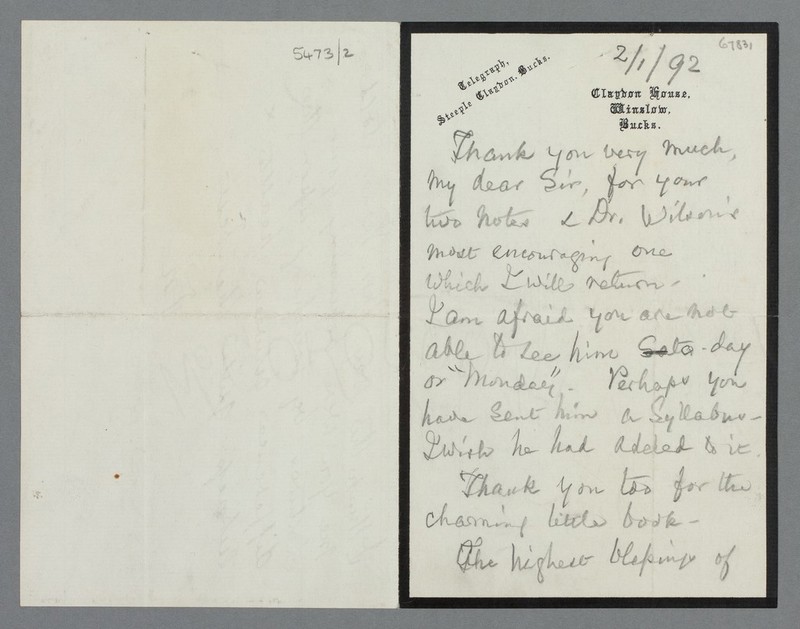 5473/2
67831
2/1/92
Telegraph,
Steeple Claydon. Bucks.
Claydon House,
Winslow,
Bucks.
Thank you very much,
my dear Sir, for your
two notes & Dr. Wilson's
most encouraging one
which I will return -
I am afraid you are not
able to see him to-day
or "Monday". Perhaps you
have sent him a Syllabus -
I wish he had added to it.
Thank you too for the
charming little book -
The highest blessings of